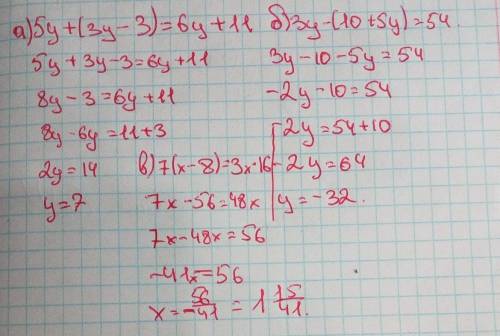 а) 5y+(3y-3)=6y+11
5y+3y-3=6y+11
8y-3=6y+11
8y-6y=11+3
2y=14
y=7
б) 3y-(10+5y)=54.
3y-10-5y=54
-2y-10=54
-2y=54+10
-2y=64
y=-32.
в) 7(x-8)=3x·16
7x-56=48x
7x-48x=56
-41x=56
x=56/-41=1 15/41.